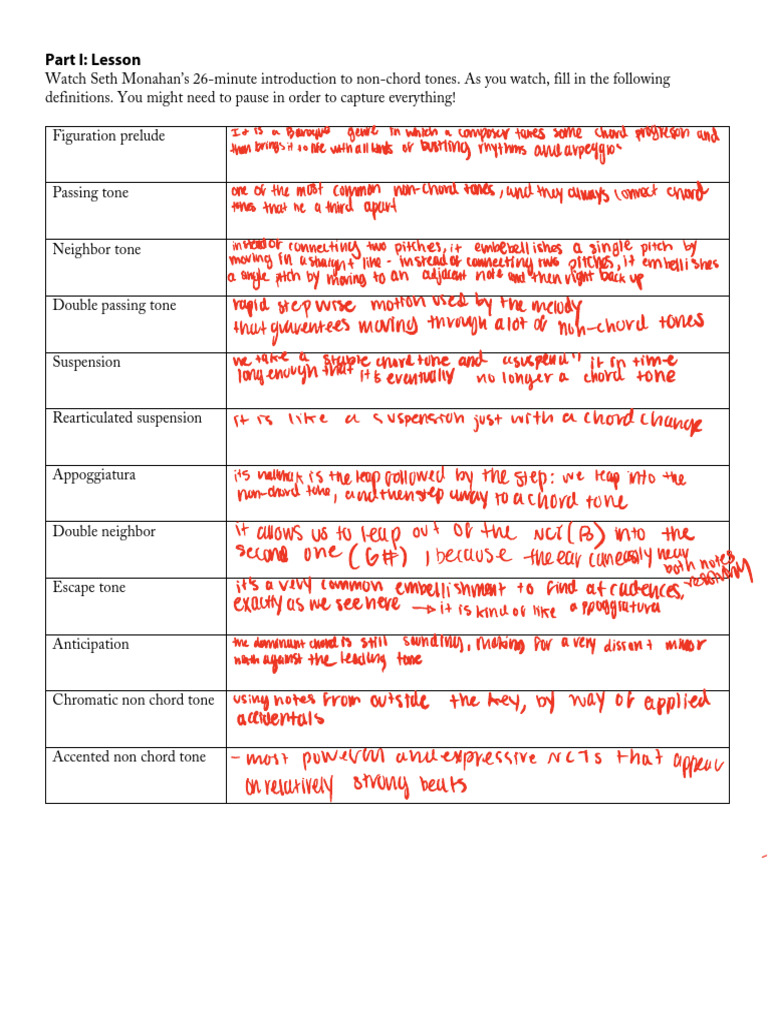 Part I: Lesson
Watch Seth Monahan's 26-minute introduction to non-chord tones. As you watch, fill in the following
definitions. You might need to pause in order to capture everything!
Figuration prelude
It is a Baroque genre in which a composer takes some chord progreson and
then brings it to life with all kinds of bustling rhythms and arpeggios
Passing tone
one of the most common non-chord tones, and they always connect chord
tones that lie a third apart
Neighbor tone
instead of connecting two pitches, it embebellishes a single pitch by
moving in a straight line - instead of connecting two pitches, it embellishes
a single pitch by moving to an adjacent note and then right back up
Double passing tone
rapid step wise motion used by the melody
that guarentees moving through a lot of non-chord tones
Suspension
we take a stable chord tone and "suspend" it in time
long enough that it's eventually no longer a chord tone
Rearticulated suspension
it is like a suspension just with a chord change
Appoggiatura
its hallmark is the leap followed by the step: we leap into the
non-chord tone, and then step away to a chord tone
Double neighbor
it allows us to leap out of the NCT (B) into the
second one (G#), because the ear can easily hear
both notes
Escape tone
it's a very common embellishment to find at cadences,
exactly as we see here → it is kind of like appoggiatura
Anticipation
the dominant chord is still sounding, making for a very dissont minor
ninth against the leading tone
Chromatic non chord tone
using notes from outside the key, by way of applied
accidentals
Accented non chord tone
- most powerful and expressive NCTs that appear
on relatively strong beats